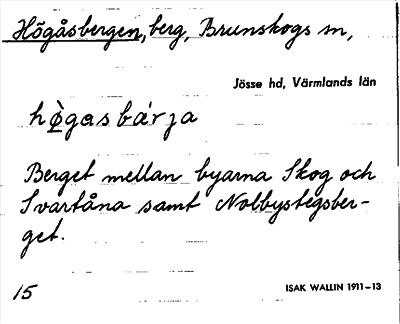 Högåsbergen, berg, Brunskogs sn,
Jösse hd, Värmlands län
hø̀gasbárja
Berget mellan byarna Skog och
Svartåna samt Nolbystegsber-
get.
15
ISAK WALLIN 1911-13